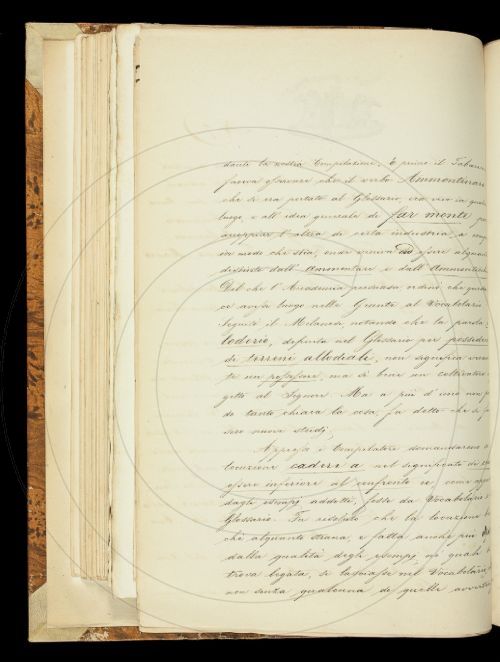 dante la nostra Compilazione. E prima il Tabarr
faceva osservare che il verbo Ammonticare
che si era portato al Glossario, era vivo in qualche
luogo, e all'idea generale di far monte
l'altra di certa industria, e
in modo che stia, onde veniva ad essere alquanto
distinto dall'ammontare e dall'Ammonticare
Del che l'Accademia persuasa ordinò che
ce avesse luogo nelle Giunte al Vocabolario
Seguitò il Milanesi notando che la parola
definita nel Glossario per possedi
di terreni allodiali, non significa vera
te un possessore, ma sì bene un coltivatore
getto al Signore. Ma a più d'uno non
do tanto chiara la cosa, fu detto che si
sero nuovi studj.
Appresso i Compilatori domandarono
locuzione cadere a nel significato di
essere inferiore al confronto ec. come
dagli esempj addotti, fosse da Vocabolario
Glossario. Fu risoluto che la locuzione
che alquanto strana, e fatta anche più
dalla qualità degli esempj nei quali
trova legata, si lasciasse nel Vocabolario,
non senza qualcuna di quelle avvert